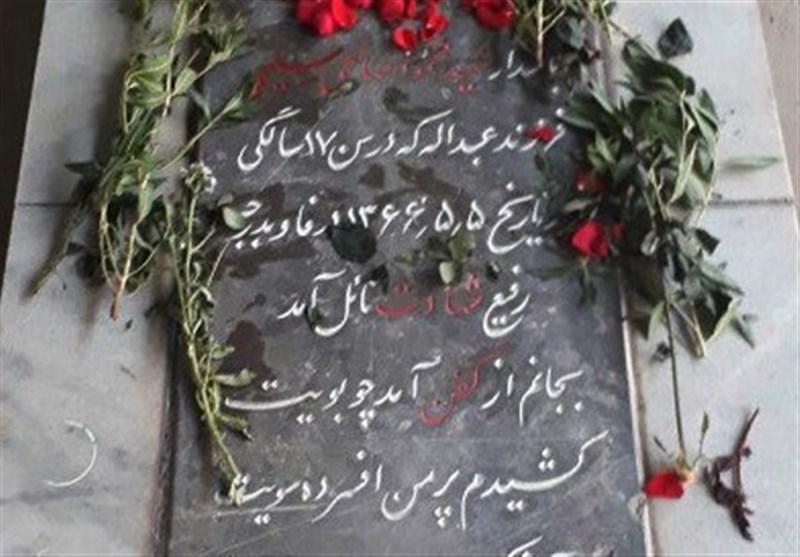 پاسدار شهید
فرزند عبداله که در سن ۱۷ سالگی
بتاریخ ۱۳۶۶٫۵٫۵ در فاو بدرجه
رفیع شهادت نائل آمد
بجانم از کفن آمد چو بویت
کشیدم پر من افسرده سویت